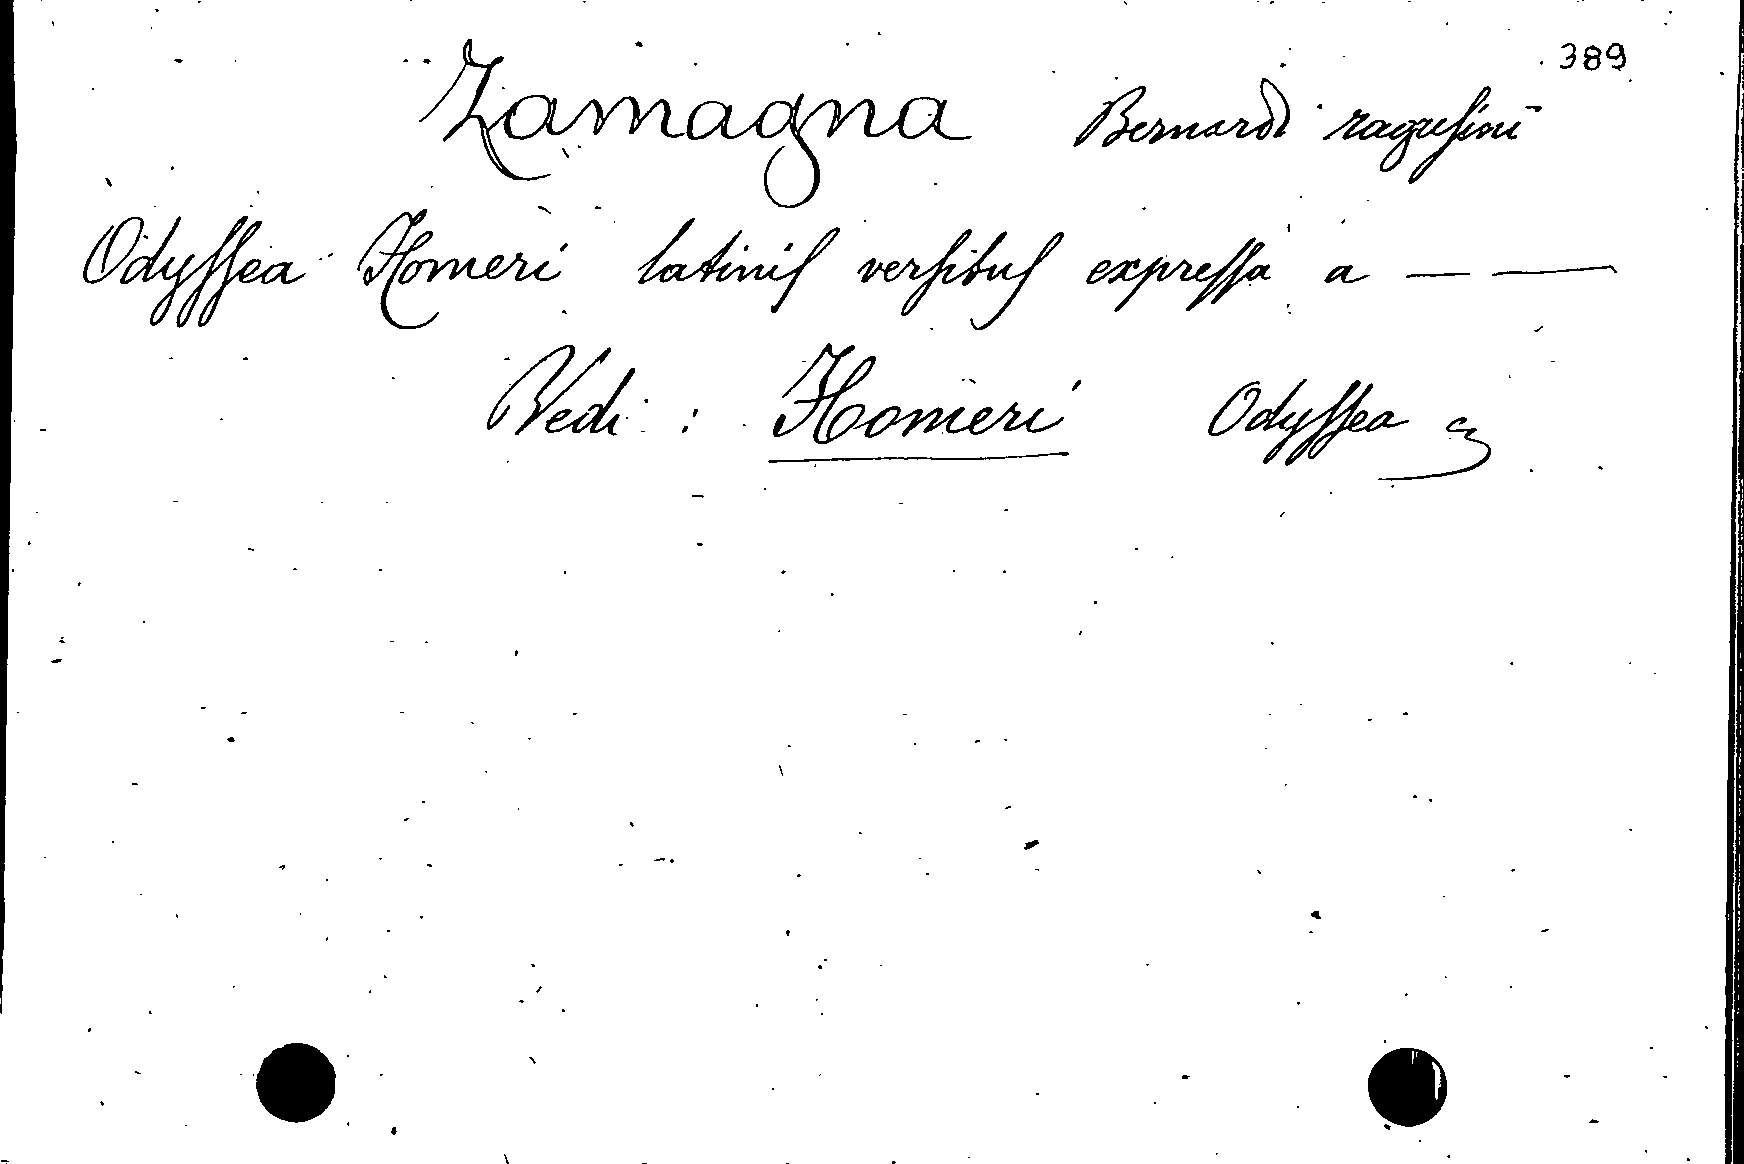 389
Zamagna Bernardi ragusini
Odyssea Homeri latinis versibus expressa a — —
Vedi : Homeri Odyssea